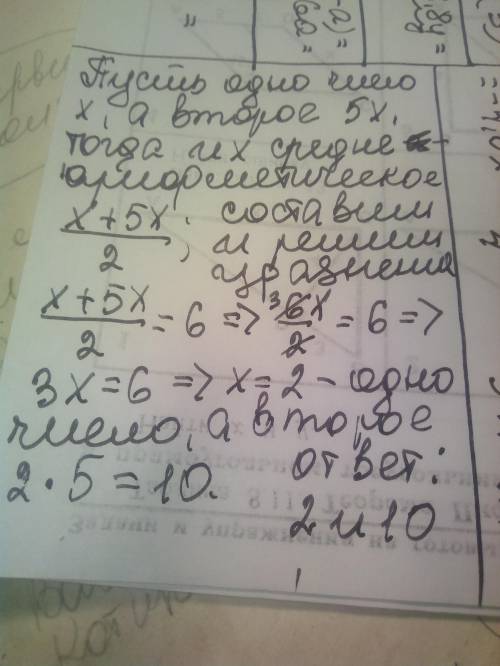 Пусть одно число
x, а второе 5x,
тогда их средне
арифметическое
x+5x/2, составим
и решим
уравнение
x+5x/2 = 6 => 6x/2 = 6 =>
3x=6 => x=2 - одно
число, а второе
2·5=10.
ответ:
2 и 10